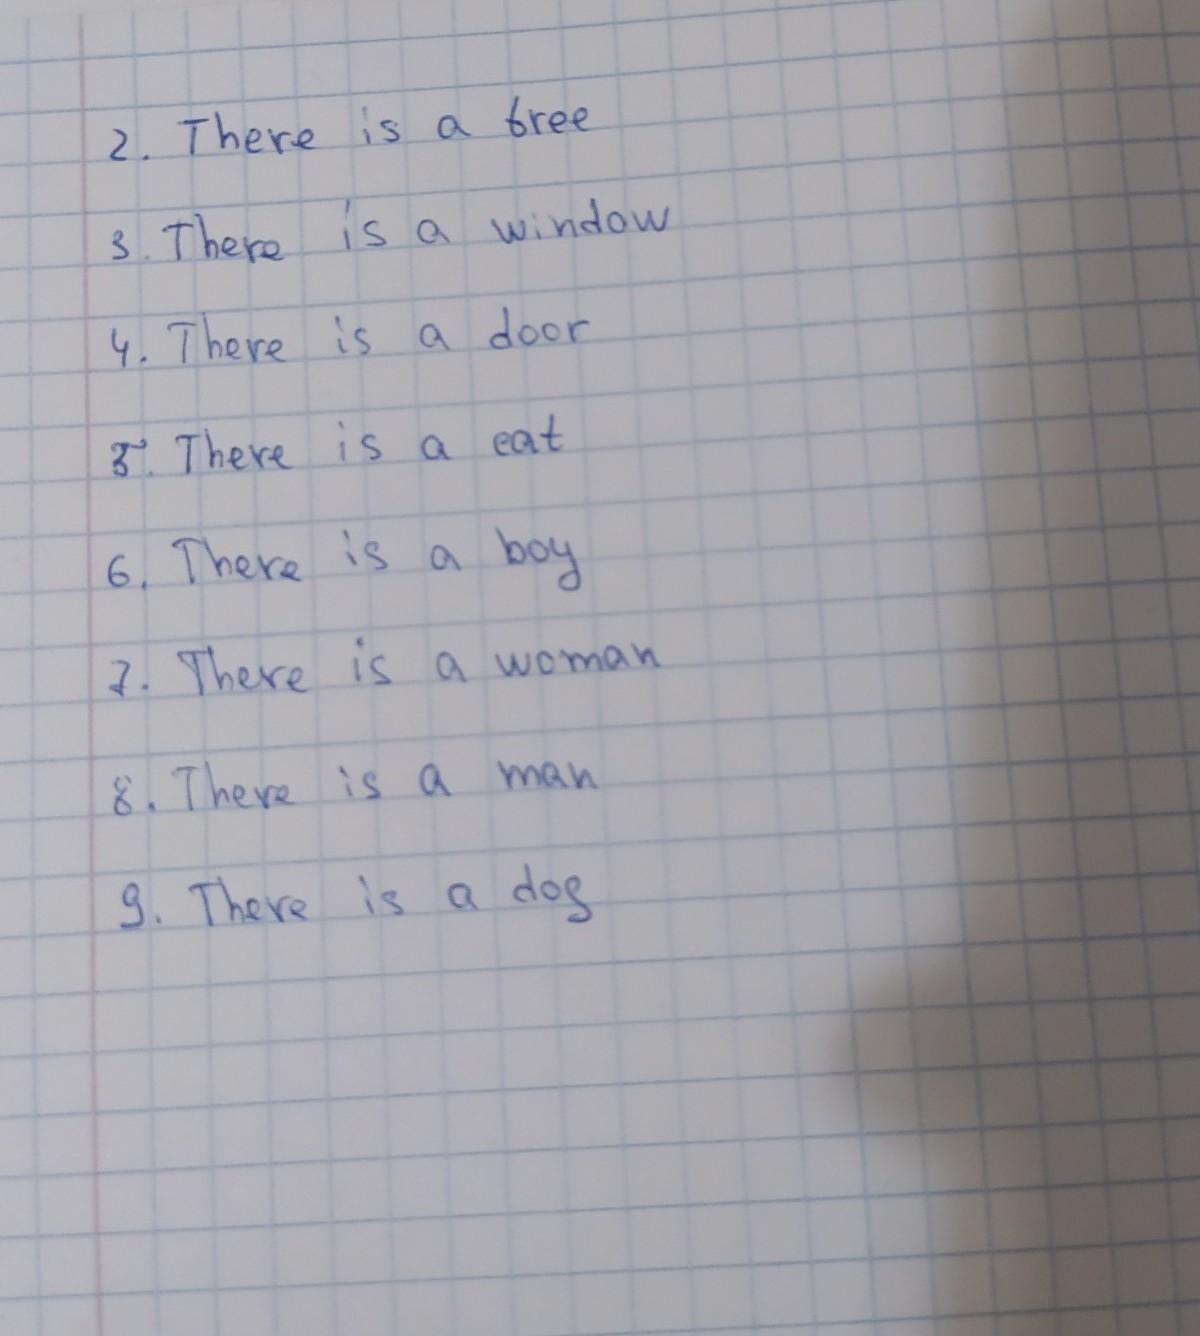 2. There is a tree
3. There is a window
4. There is a door
5. There is a cat
6. There is a boy
7. There is a woman
8. There is a man
9. There is a dog